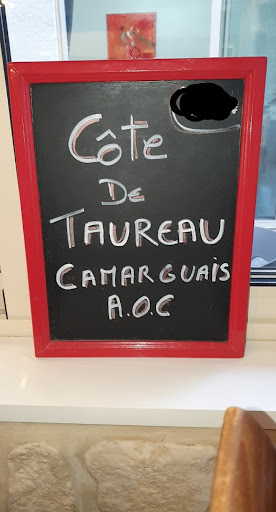 Côte
De
TAUREAU
CAMARGUAIS
A.O.C